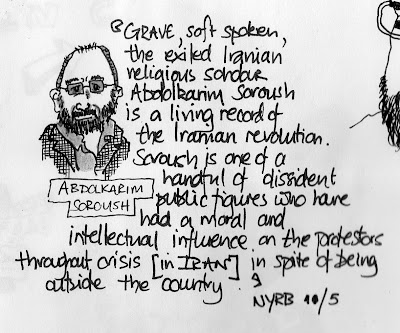 "GRAVE, soft spoken,
the exiled Iranian
religious scholar
Abdolkarim Soroush
is a living record of
the Iranian revolution.
Soroush is one of a
handful of dissident
public figures who have
had a moral and
intellectual influence on the protestors
throughout crisis [in IRAN] in spite of being
outside the country."
NYRB 10/5
ABDOLKARIM
SOROUSH